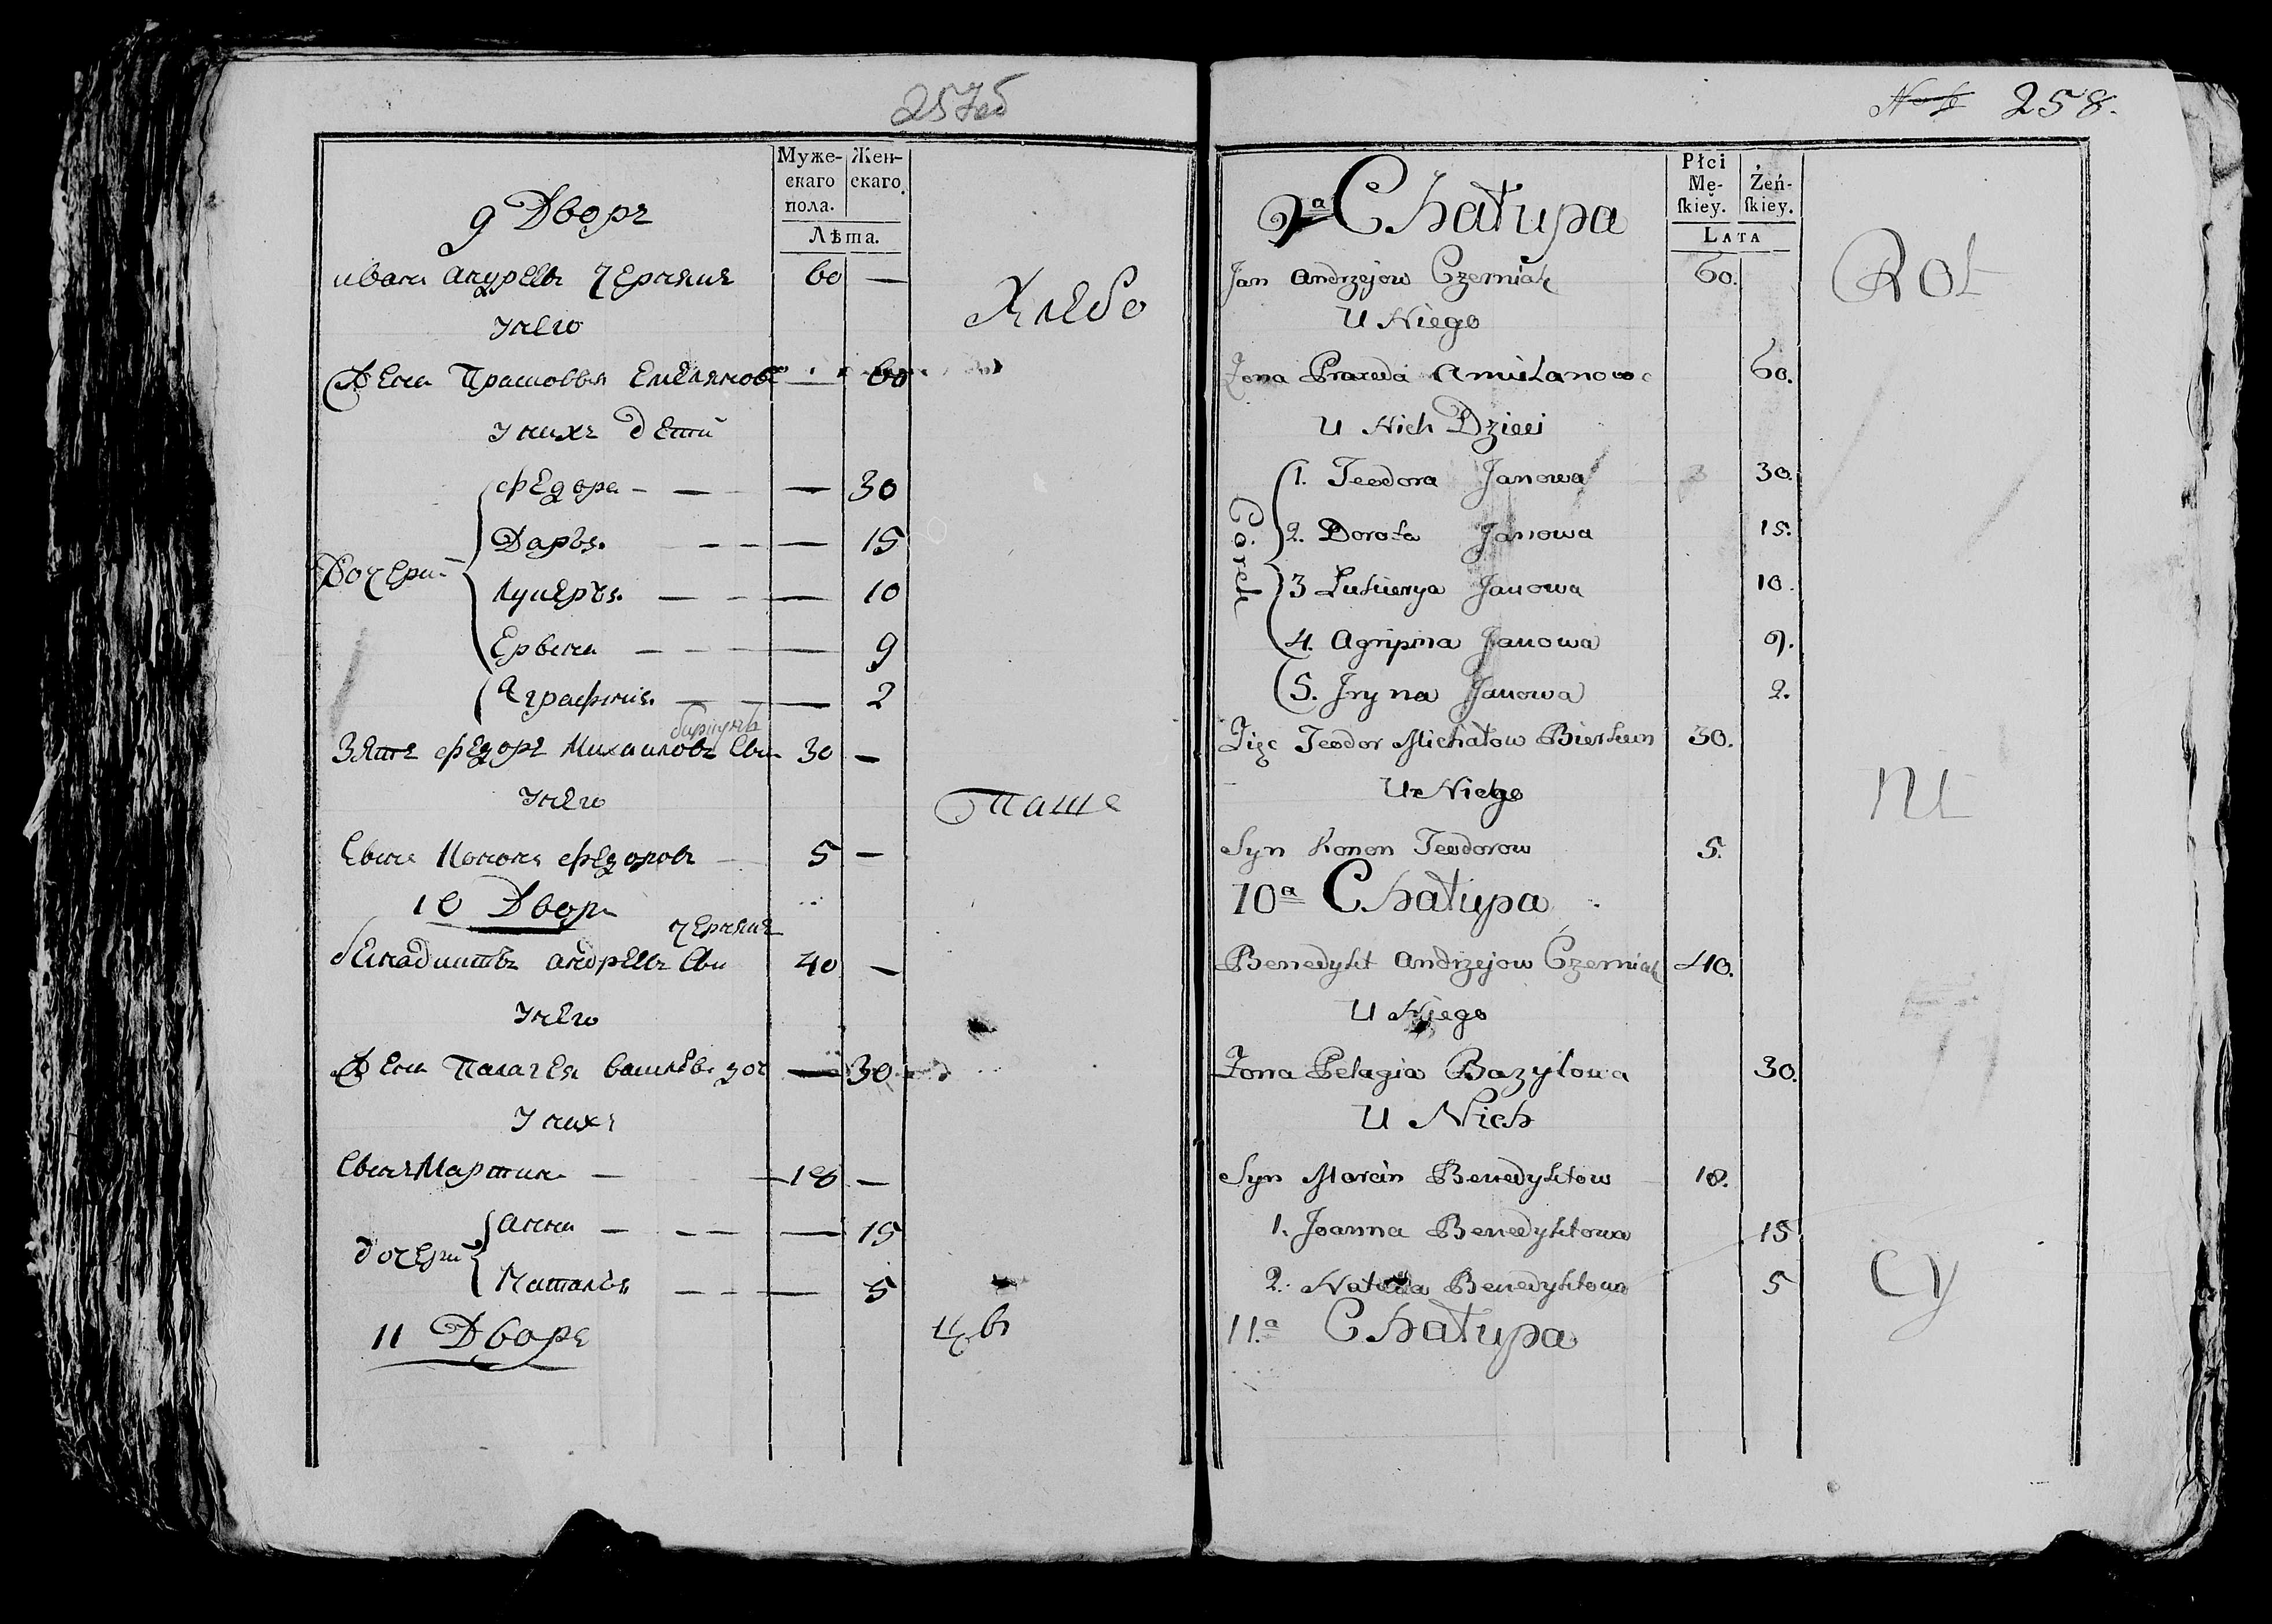 257об
Муже-
скаго
пола.
Жен-
скаго.
Лѣта.
9 Дворъ
иванъ андреевъ Чернякъ 60 —
Хлебо
у него
Жена Прасовья Емелянов — 60
у нихъ дети
федора — — — 30
Даръя — — — 15
Дочери
Лукеръя — — — 10
Ервена — — — 9
Аграфиня — — — 2
Зять федоръ Михаиловъ 30 —
у него
паше
Евинъ Кононъ федоровъ — 5 —
10 Дворъ
Чернякъ
бенадиктъ андреевъ 40 —
у него
Жена Палагея василев доч — 30
у нихъ
Мартинъ — 18 —
анна — — — 15
дочери
Наталъя — — — 5
11 Дворъ
цвъ
258.
Płci
Mę-
ſkiey.
Żeń-
ſkiey.
LATA
9a Chałupa
Jan Andrzejow Czerniak 60.
Rol
U Niego
Żona Praxeda Amilanowa 60.
U Nich Dzieci
Córek
1. Teodora Janowa 30.
2. Dorota Janowa 15.
3 Lukierya Janowa 10.
4. Agripina Janowa 9.
5. Jryna Janowa 2.
Zięc Teodor Michałow Bierkun 30.
U Niego
ni
Syn Konon Teodorow 5.
10a Chałupa
Benedykt Andrzejow Czerniak 40.
U Niego
Żona Pelagia Bazylowa 30.
U Nich
Syn Marcin Benedyktow 18.
1. Joanna Benedyktowa 15
2. Benedyktowa 5
cy
11.a Chałupa